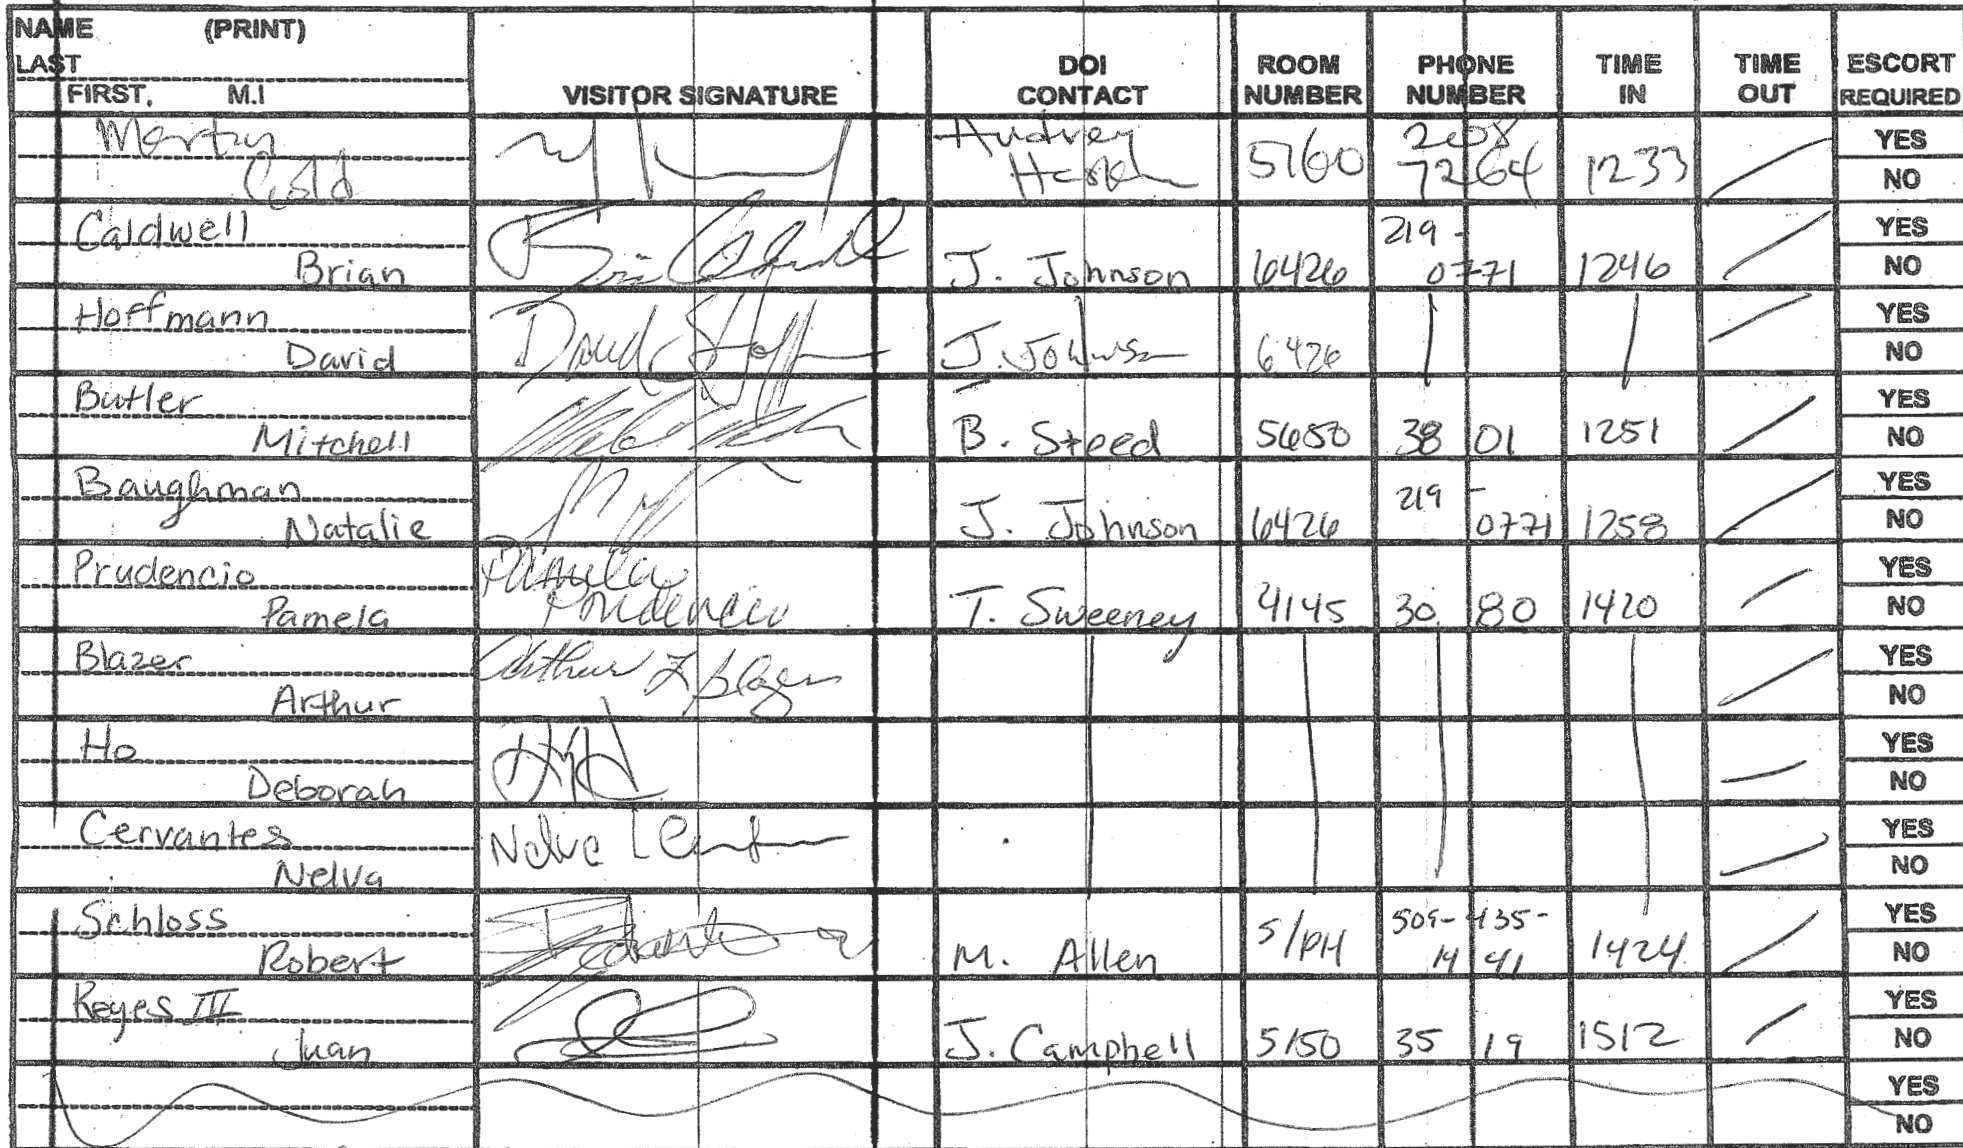 NAME (PRINT)
LAST
FIRST, M.I
VISITOR SIGNATURE
DOI CONTACT
ROOM NUMBER
PHONE NUMBER
TIME IN
TIME OUT
ESCORT REQUIRED
Gold Audrey 5760 208 7264 1233 YES NO
Caldwell Brian J. Johnson 6426 219-0771 1246 YES NO
Hoffmann David David J. Johnson 6426 YES NO
Butler Mitchell B. Steed 5650 3801 1251 YES NO
Baughman Natalie J. Johnson 6426 219-0771 1258 YES NO
Prudencio Pamela Pamela Prudencio T. Sweeney 4145 3080 1420 YES NO
Blazer Arthur Arthur Blazer YES NO
Ho Deborah YES NO
Cervantes Nelva Nelva YES NO
Schloss Robert M. Allen S/PH 509-435-1441 1424 YES NO
Reyes III Juan J. Campbell 5150 3519 1512 YES NO
YES NO